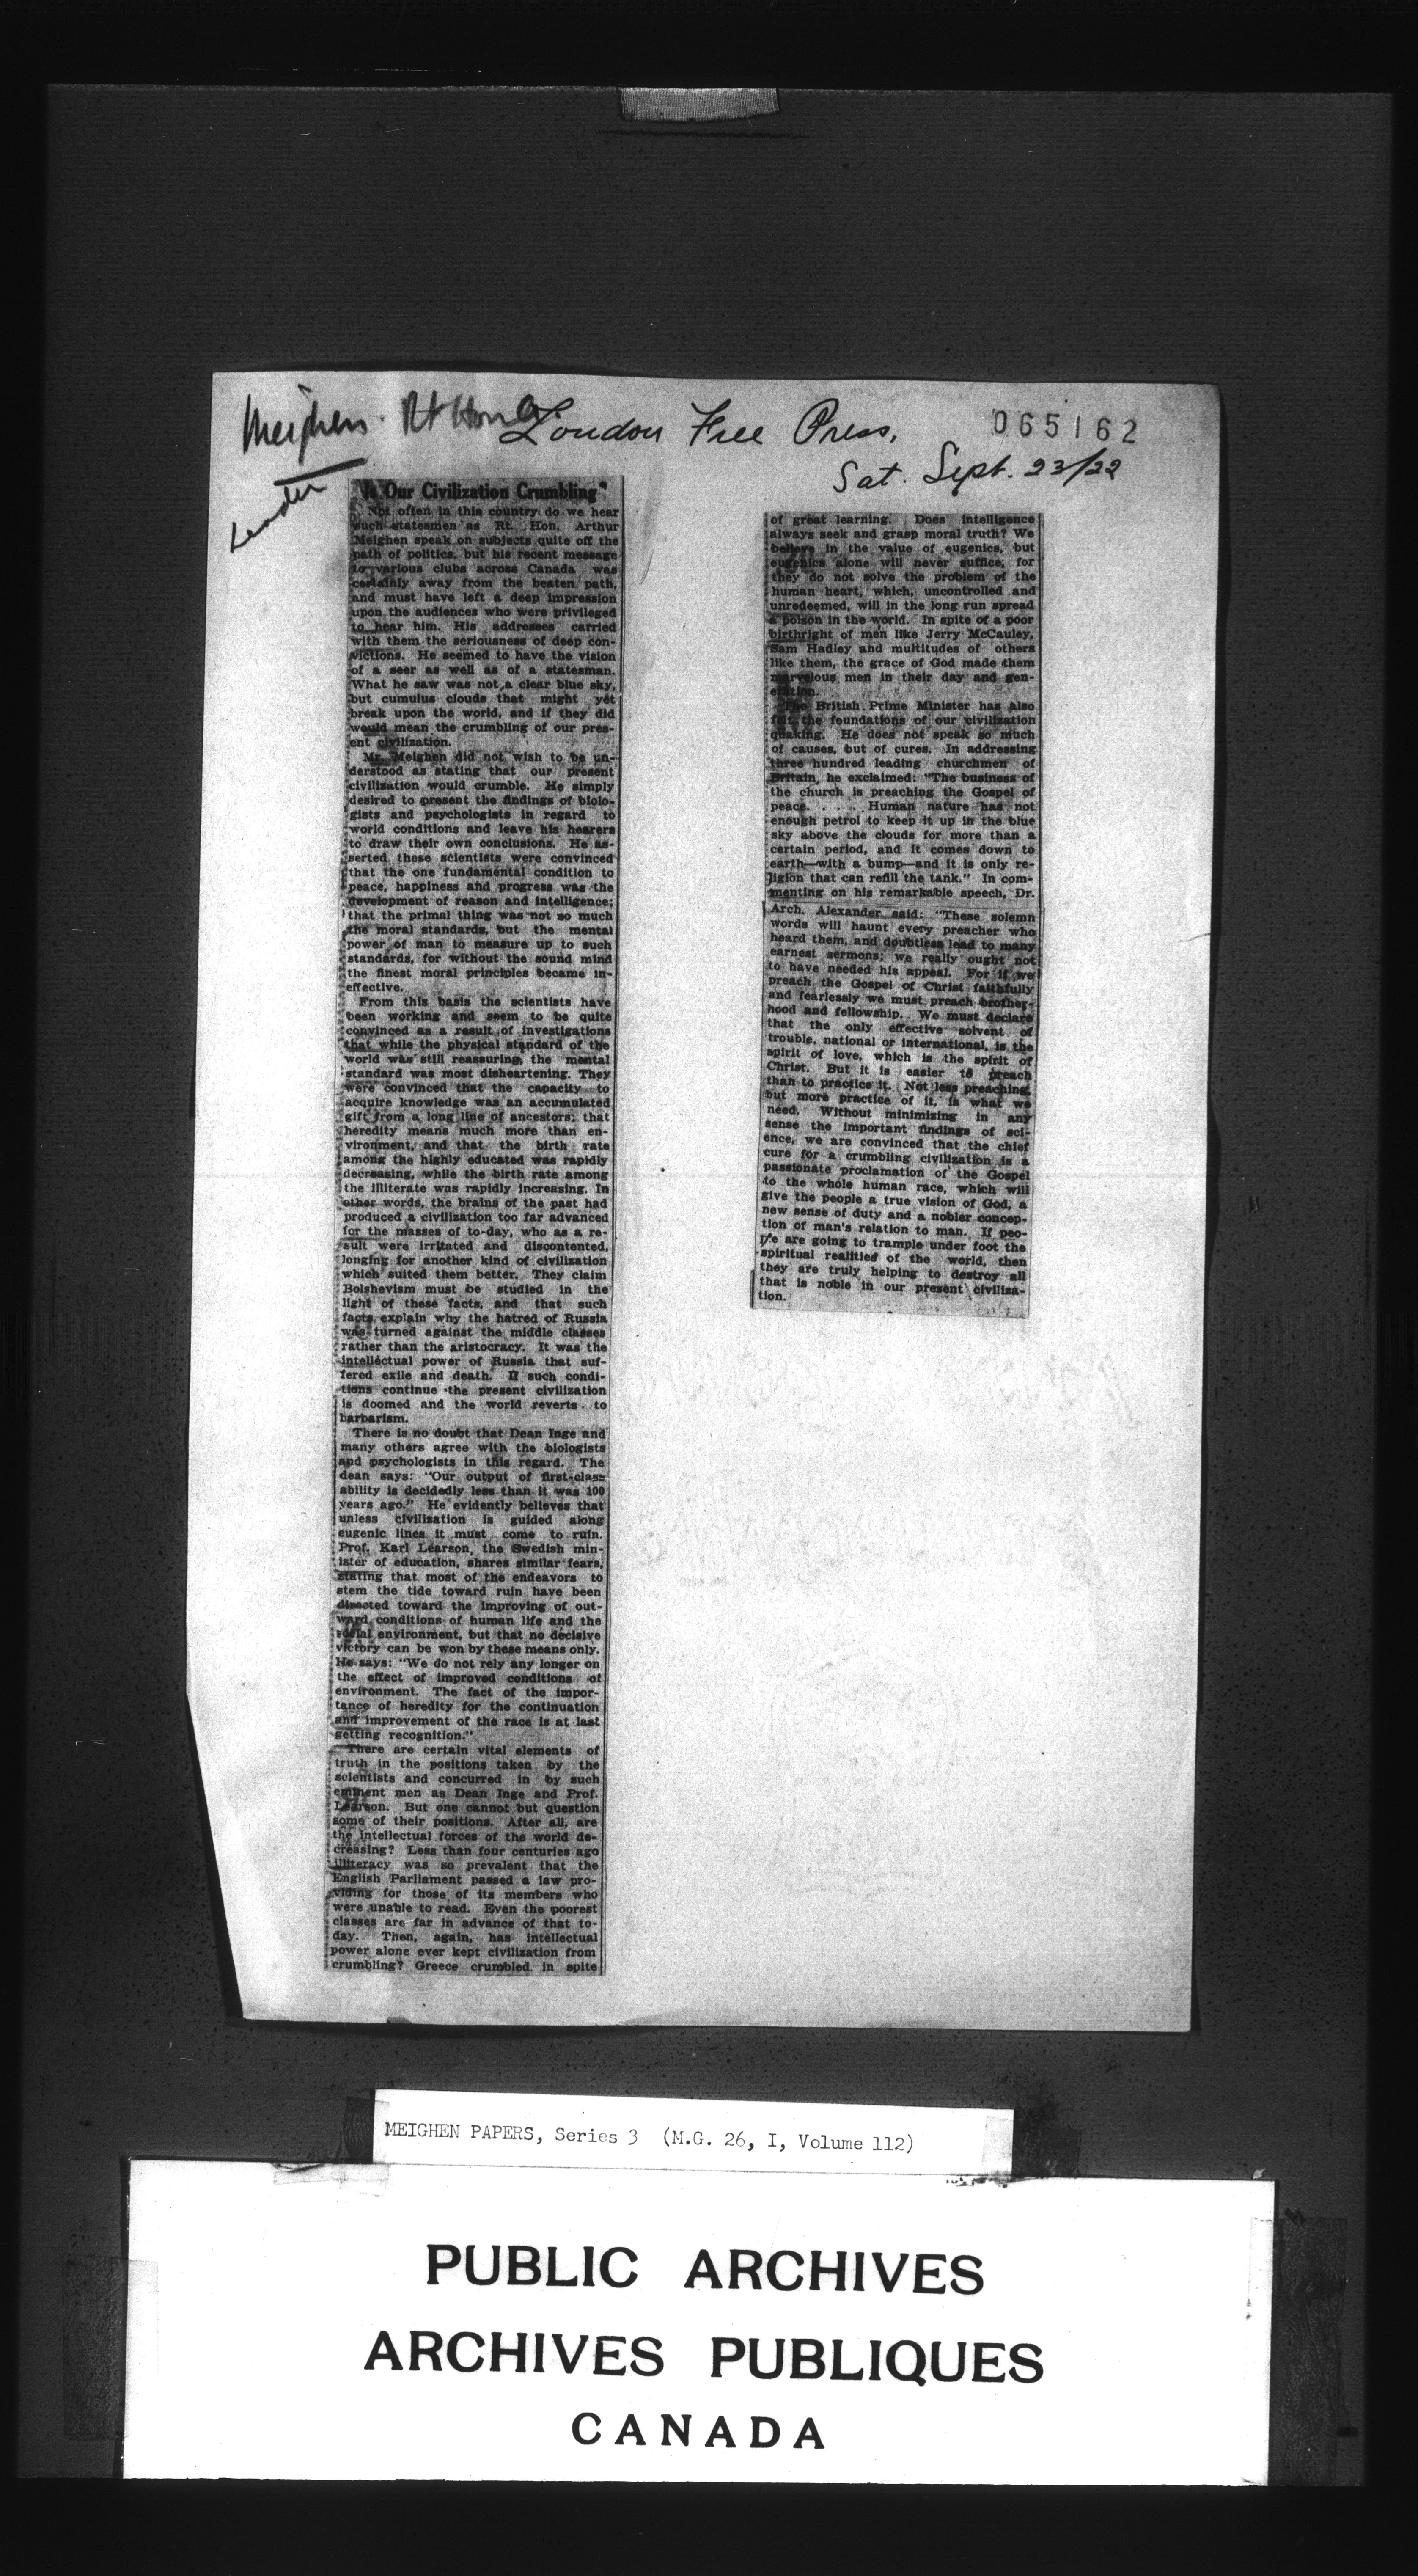 Meighen Rt Hon A
London Free Press,
065162
Sat. Sept. 23/22
Leader
"Is Our Civilization Crumbling"
Not often in this country do we hear
such statesmen as Rt. Hon. Arthur
Meighen speak on subjects quite off the
path of politics, but his recent message
to various clubs across Canada was
certainly away from the beaten path,
and must have left a deep impression
upon the audiences who were privileged
to hear him. His addresses carried
with them the seriousness of deep con-
victions. He seemed to have the vision
of a seer as well as of a statesman.
What he saw was not a clear blue sky,
but cumulus clouds that might yet
break upon the world, and if they did
would mean the crumbling of our pres-
ent civilization.
Mr. Meighen did not wish to be un-
derstood as stating that our present
civilization would crumble. He simply
desired to present the findings of biolo-
gists and psychologists in regard to
world conditions and leave his hearers
to draw their own conclusions. He as-
serted these scientists were convinced
that the one fundamental condition to
peace, happiness and progress was the
development of reason and intelligence;
that the primal thing was not so much
the moral standards, but the mental
power of man to measure up to such
standards, for without the sound mind
the finest moral principles became in-
effective.
From this basis the scientists have
been working and seem to be quite
convinced as a result of investigations
that while the physical standard of the
world was still reassuring, the mental
standard was most disheartening. They
were convinced that the capacity to
acquire knowledge was an accumulated
gift from a long line of ancestors; that
heredity means much more than en-
vironment, and that the birth rate
among the highly educated was rapidly
decreasing, while the birth rate among
the illiterate was rapidly increasing. In
other words, the brains of the past had
produced a civilization too far advanced
for the masses of to-day, who as a re-
sult were irritated and discontented,
longing for another kind of civilization
which suited them better. They claim
Bolshevism must be studied in the
light of these facts, and that such
facts explain why the hatred of Russia
was turned against the middle classes
rather than the aristocracy. It was the
intellectual power of Russia that suf-
fered exile and death. If such condi-
tions continue the present civilization
is doomed and the world reverts to
barbarism.
There is no doubt that Dean Inge and
many others agree with the biologists
and psychologists in this regard. The
dean says: "Our output of first-class
ability is decidedly less than it was 100
years ago." He evidently believes that
unless civilization is guided along
eugenic lines it must come to ruin.
Prof. Karl Learson, the Swedish min-
ister of education, shares similar fears,
stating that most of the endeavors to
stem the tide toward ruin have been
directed toward the improving of out-
ward conditions of human life and the
social environment, but that no decisive
victory can be won by these means only.
He says: "We do not rely any longer on
the effect of improved conditions of
environment. The fact of the impor-
tance of heredity for the continuation
and improvement of the race is at last
getting recognition."
There are certain vital elements of
truth in the positions taken by the
scientists and concurred in by such
eminent men as Dean Inge and Prof.
Learson. But one cannot but question
some of their positions. After all, are
the intellectual forces of the world de-
creasing? Less than four centuries ago
illiteracy was so prevalent that the
English Parliament passed a law pro-
viding for those of its members who
were unable to read. Even the poorest
classes are far in advance of that to-
day. Then, again, has intellectual
power alone ever kept civilization from
crumbling? Greece crumbled in spite
of great learning. Does intelligence
always seek and grasp moral truth? We
believe in the value of eugenics, but
eugenics alone will never suffice, for
they do not solve the problem of the
human heart, which, uncontrolled and
unredeemed, will in the long run spread
a poison in the world. In spite of a poor
birthright of men like Jerry McCauley,
Sam Hadley and multitudes of others
like them, the grace of God made them
marvelous men in their day and gen-
eration.
The British Prime Minister has also
felt the foundations of our civilization
quaking. He does not speak so much
of causes, but of cures. In addressing
three hundred leading churchmen of
Britain, he exclaimed: "The business of
the church is preaching the Gospel of
peace. . . . . Human nature has not
enough petrol to keep it up in the blue
sky above the clouds for more than a
certain period, and it comes down to
earth—with a bump—and it is only re-
ligion that can refill the tank." In com-
menting on his remarkable speech, Dr.
Arch. Alexander said: "These solemn
words will haunt every preacher who
heard them, and doubtless lead to many
earnest sermons; we really ought not
to have needed his appeal. For if we
preach the Gospel of Christ faithfully
and fearlessly we must preach brother-
hood and fellowship. We must declare
that the only effective solvent of
trouble, national or international, is the
spirit of love, which is the spirit of
Christ. But it is easier to preach
than to practice it. Not less preaching,
but more practice of it, is what we
need. Without minimizing in any
sense the important findings of sci-
ence, we are convinced that the chief
cure for a crumbling civilization is a
passionate proclamation of the Gospel
to the whole human race, which will
give the people a true vision of God, a
new sense of duty and a nobler concep-
tion of man's relation to man. If peo-
ple are going to trample under foot the
spiritual realities of the world, then
they are truly helping to destroy all
that is noble in our present civiliza-
tion.
MEIGHEN PAPERS, Series 3 (M.G. 26, I, Volume 112)
PUBLIC ARCHIVES
ARCHIVES PUBLIQUES
CANADA